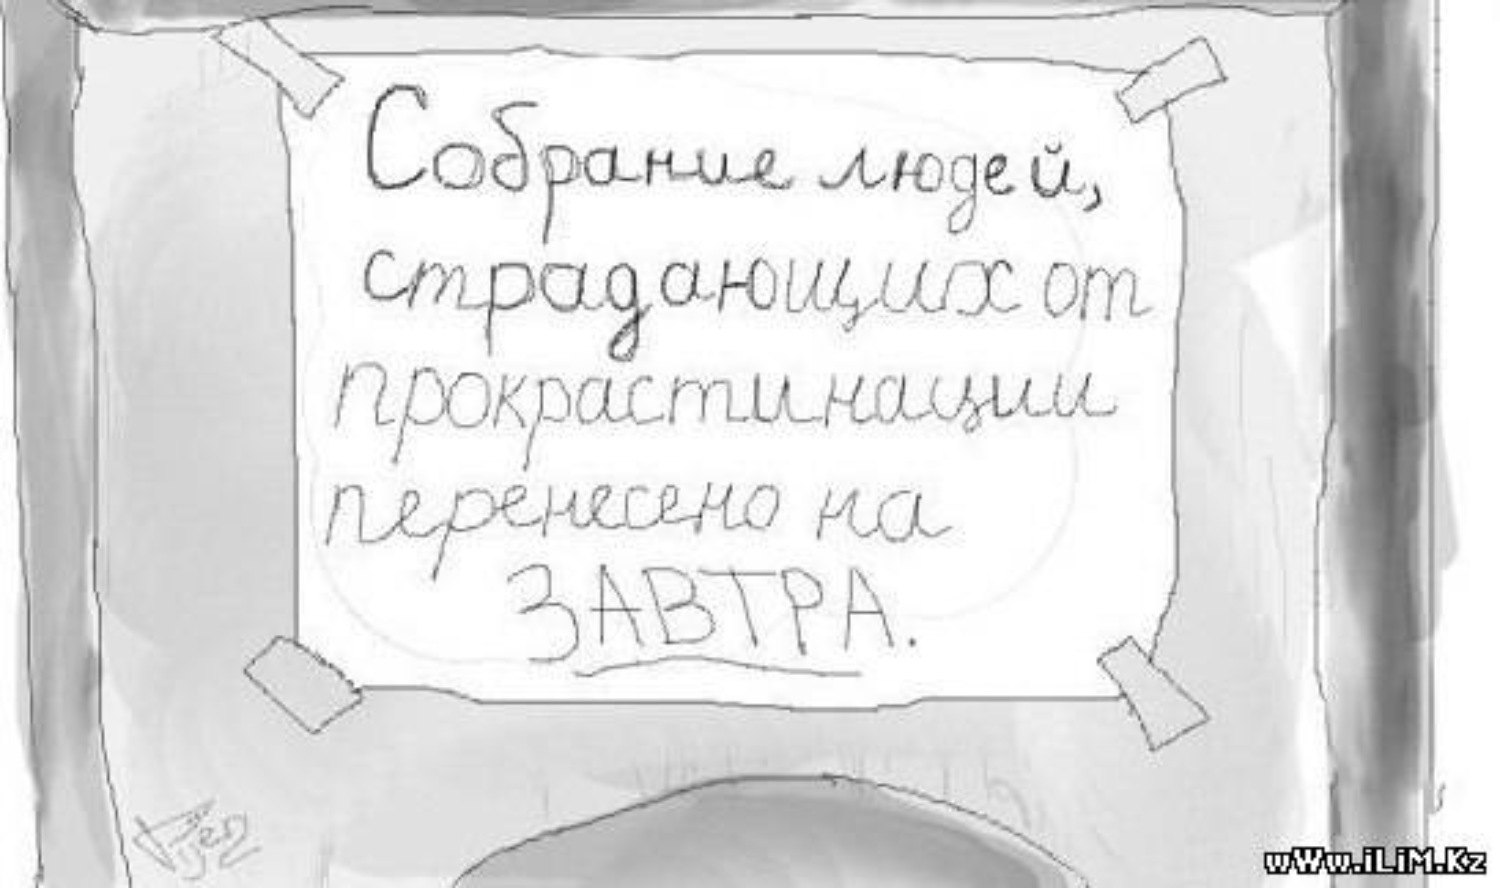 Собрание людей,
страдающих от
прокрастинации
перенесено на
ЗАВТРА.
wWw.iLiM.Kz